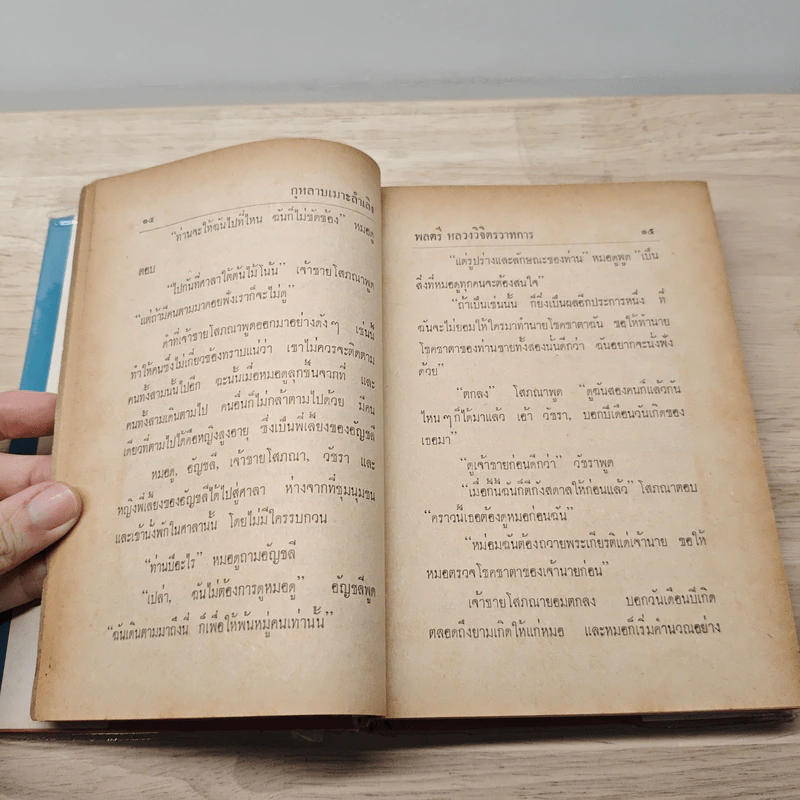 กุหลาบเมาะลำเลิง
๑๔
"ท่านจะให้ฉันไปที่ไหน ฉันก็ไม่ขัดข้อง" หมอดู
ตอบ
"ไปกันที่ศาลาใต้ต้นไม้โน้น" เจ้าชายโสภณาพูด
"แต่ถ้ามีคนตามมาคอยฟังเราก็จะไม่ดู"
คำที่เจ้าชายโสภณาพูดออกมาอย่างดังๆ เช่นนี้
ทำให้คนซึ่งไม่เกี่ยวข้องทราบแน่ว่า เขาไม่ควรจะติดตาม
คนทั้งสามนั้นไปอีก ฉะนั้นเมื่อหมอดูลุกขึ้นจากที่ และ
คนทั้งสามเดินตามไป คนอื่นก็ไม่กล้าตามไปด้วย มีคน
เดียวที่ตามไปได้คือหญิงสูงอายุ ซึ่งเป็นพี่เลี้ยงของอัญชลี
หมอดู, อัญชลี, เจ้าชายโสภณา, วัชรา และ
หญิงพี่เลี้ยงของอัญชลีได้ไปสู่ศาลา ห่างจากที่ชุมนุมชน
และเข้านั่งพักในศาลานั้น โดยไม่มีใครรบกวน
"ท่านปีอะไร" หมอดูถามอัญชลี
"เปล่า, ฉันไม่ต้องการดูหมอดู" อัญชลีพูด
"ฉันเดินตามมาถึงนี่ ก็เพื่อให้พ้นหมู่คนเท่านั้น"
พลตรี หลวงวิจิตรวาทการ
๑๕
"แต่รูปร่างและลักษณะของท่าน" หมอดูพูด "เป็น
สิ่งที่หมอดูทุกคนจะต้องสนใจ"
"ถ้าเป็นเช่นนั้น ก็ยิ่งเป็นผลอีกประการหนึ่ง ที่
ฉันจะไม่ยอมให้ใครมาทำนายโชคชาตาฉัน ขอให้ทำนาย
โชคชาตาของท่านชายทั้งสองนั้นดีกว่า ฉันอยากจะนั่งฟัง
ด้วย"
"ตกลง" โสภณาพูด "ดูฉันสองคนก็แล้วกัน
ไหนๆก็ได้มาแล้ว เอ้า วัชรา, บอกปีเดือนวันเกิดของ
เธอมา"
"ดูเจ้าชายก่อนดีกว่า" วัชราพูด
"เมื่อกี้นี้ฉันก็ตีกังสดาลให้ก่อนแล้ว" โสภณาตอบ
"คราวนี้เธอต้องดูหมอก่อนฉัน"
"หม่อมฉันต้องถวายพระเกียรติแด่เจ้านาย ขอให้
หมอตรวจโชคชาตาของเจ้านายก่อน"
เจ้าชายโสภณายอมตกลง บอกวันเดือนปีเกิด
ตลอดถึงยามเกิดให้แก่หมอ และหมอก็เริ่มคำนวณอย่าง